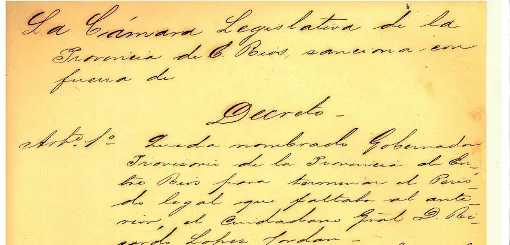 La Cámara Legislativa de la
Provincia de E. Rios, sanciona con
fuerza de
Decreto.
Arto. 1º Queda nombrado Gobernador
Provisorio de la Provincia de En-
tre Rios para terminar el Perio-
do legal que faltaba al ante-
rior, el Ciudadano Gral D. Ri-
cardo Lopez Jordan.